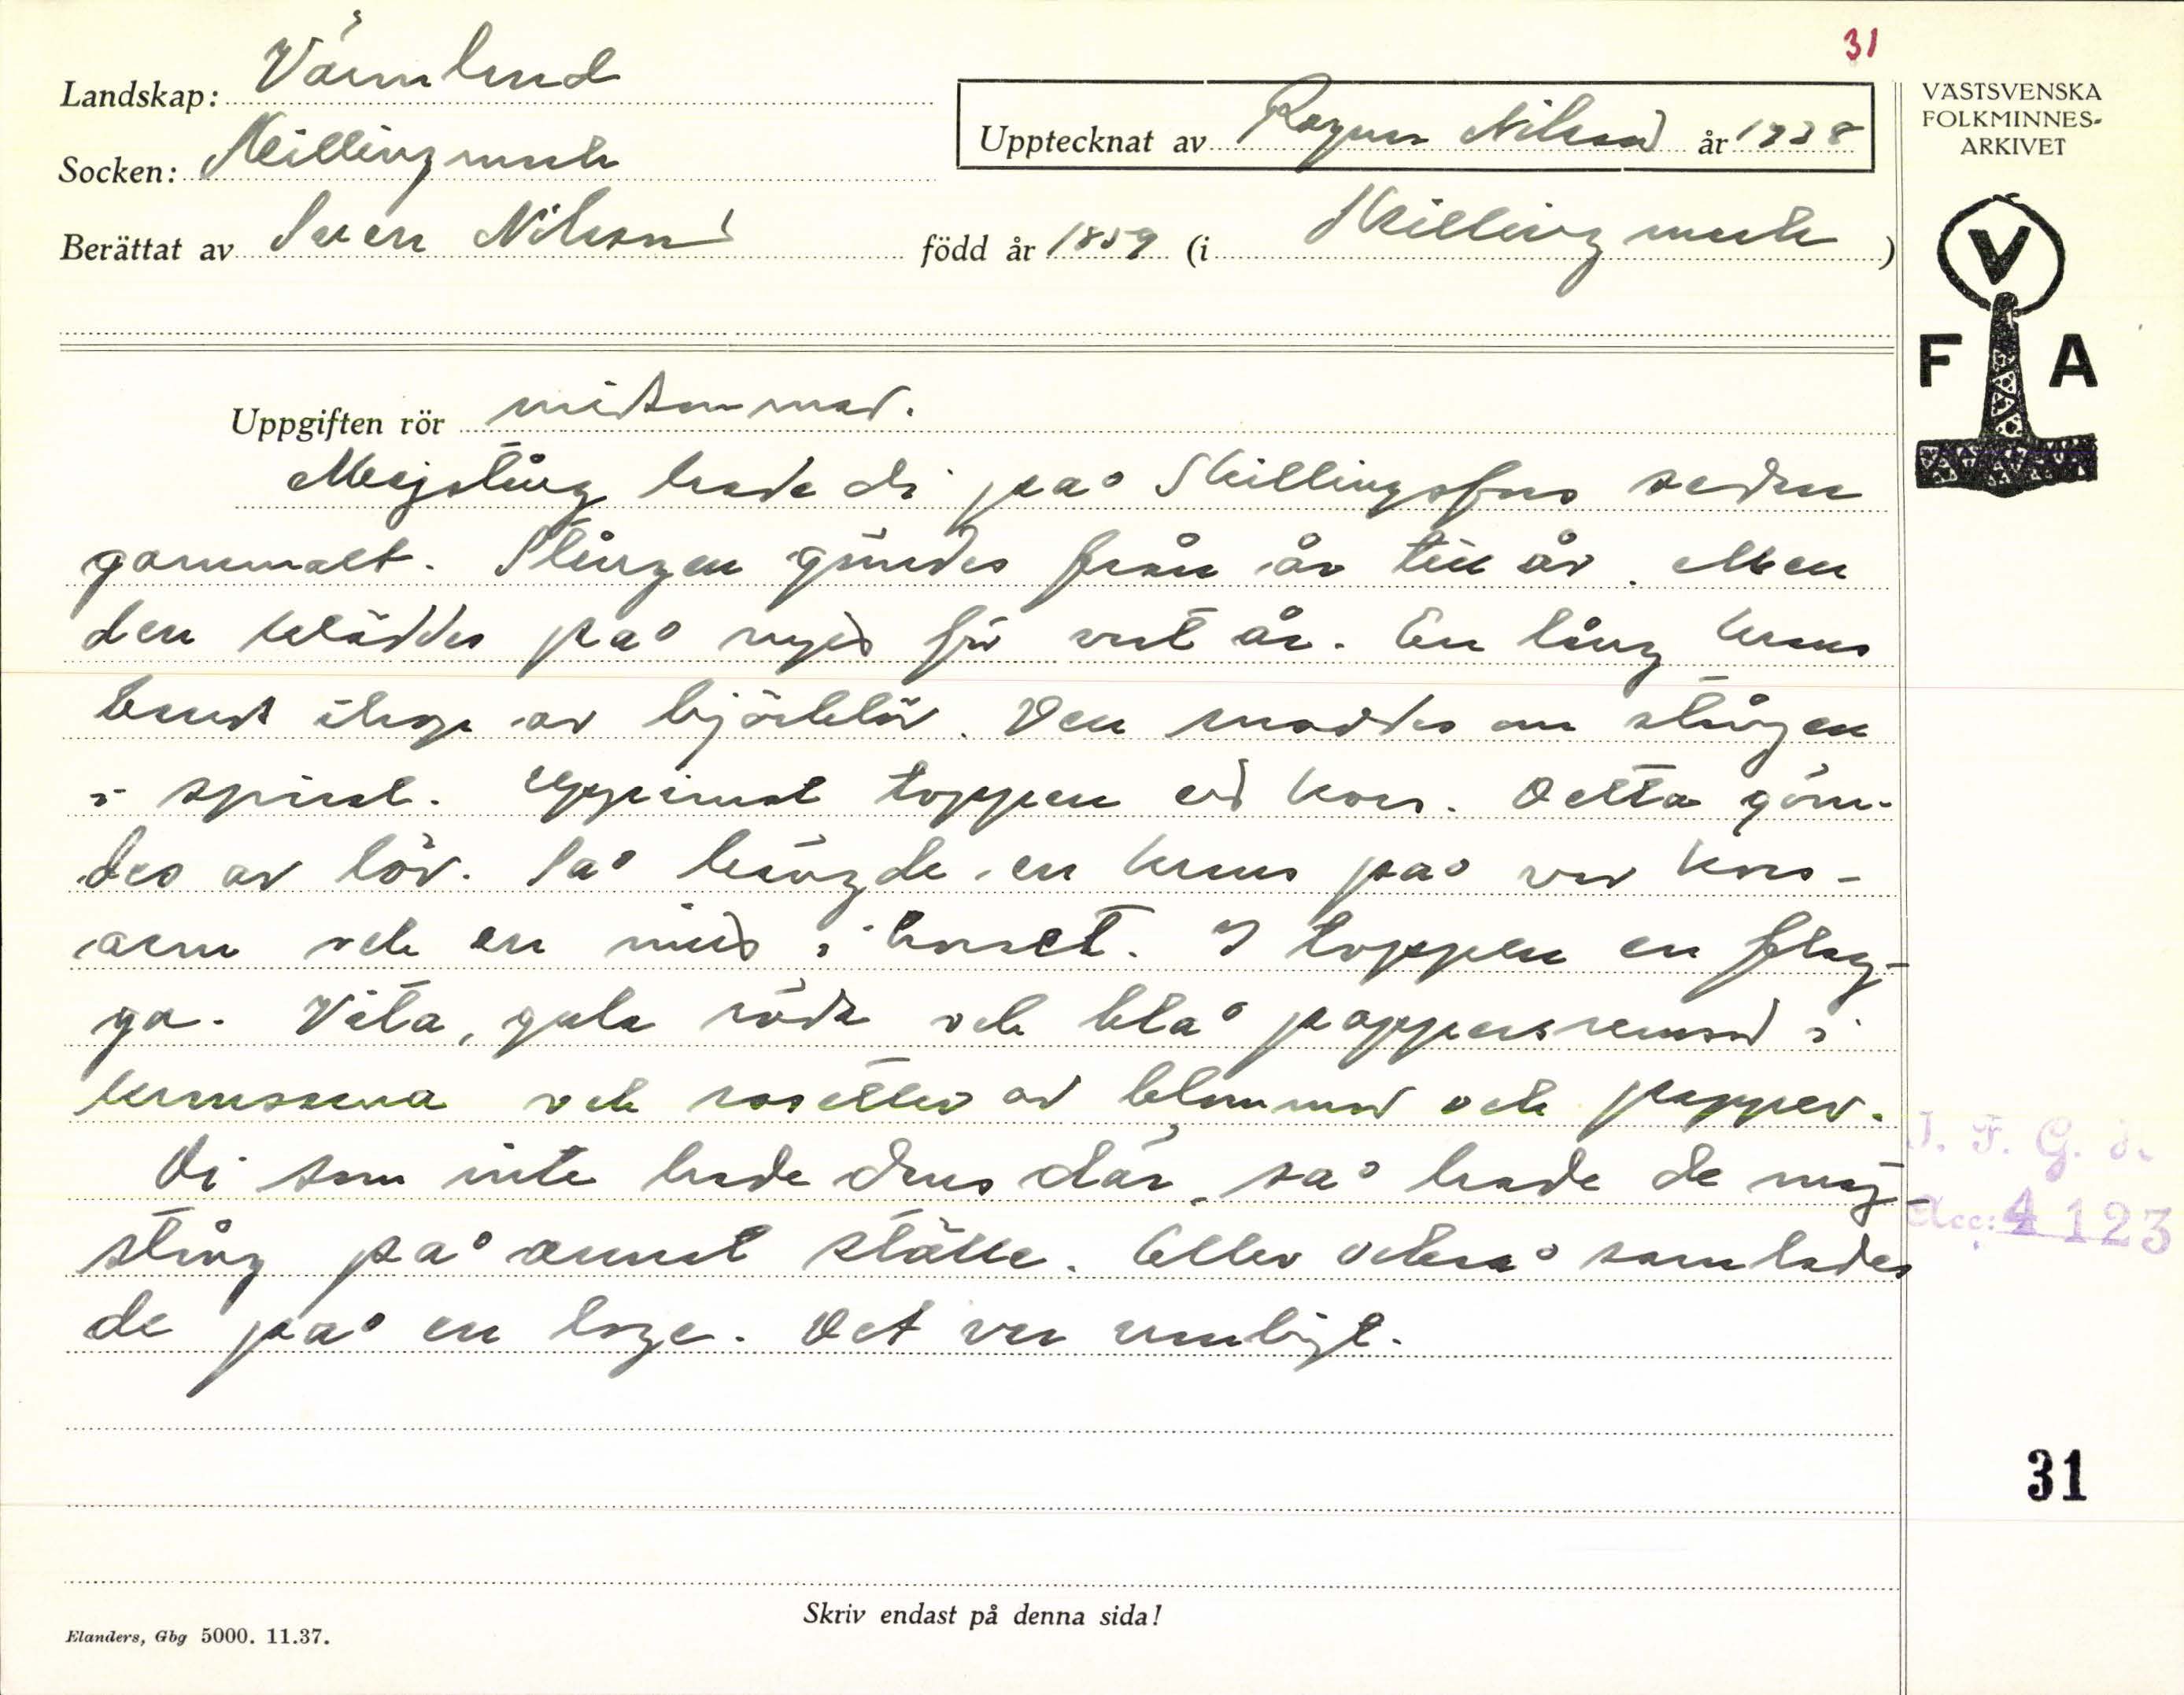 31
Landskap: Värmland
Socken: Skillingmark
Upptecknat av Ragnar Nilsson år 1938
Berättat av Sven Nilsson född år 1859 (i Skillingmark)
VÄSTSVENSKA
FOLKMINNES-
ARKIVET
V
F A
Uppgiften rör midsommar.
Majstång hade di på Skillingsfors sedan
gammalt. Stången gömdes från år till år. Men
den kläddes på nytt för vart år. En lång krans
bands ihop av björklöv. Den snoddes om stången
i spiral. Uppimot toppen ett kors. Detta göm-
des av löv. Så hängde en krans på var kors-
arm och en mitt i korset. I toppen en flag-
ga. Vita, gula röda och blå pappersremsor i
kransarna och rosetter av blommor och papper.
Di som inte hade dans där, så hade de maj-
stång på annat ställe. Eller också samlades
de på en loge. Det var vanligt.
I. F. G. H.
Acc: 4123
31
Skriv endast på denna sida!
Elanders, Gbg 5000. 11.37.